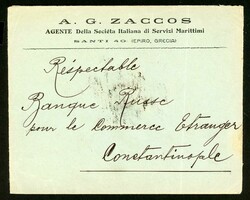 A. G. ZACCOS
AGENTE Della Società Italiana di Servizi Marittimi
SANTI 40 (EPIRO, GRECIA)
Réspectable
Banque Russe
pour le Commerce Etranger
Constantinople